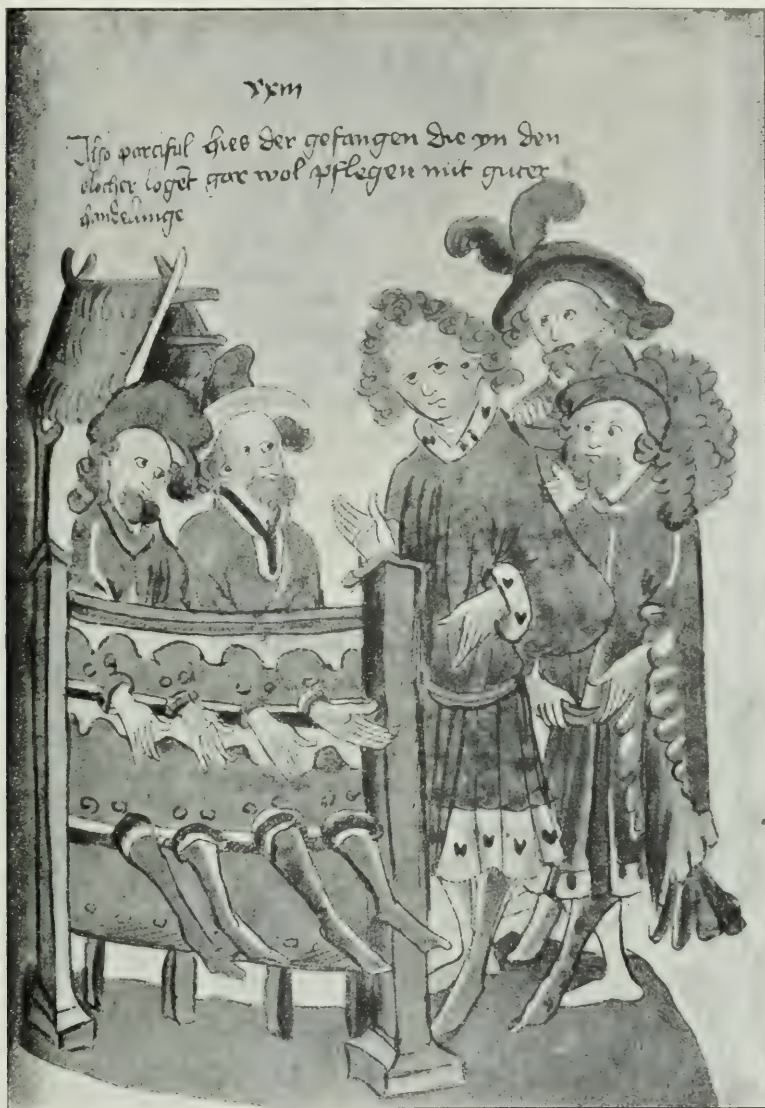 xxiii
Also parcifal hies der gefangen die yn den
blocher logēt gar wol pflegen mit guter
handelunge